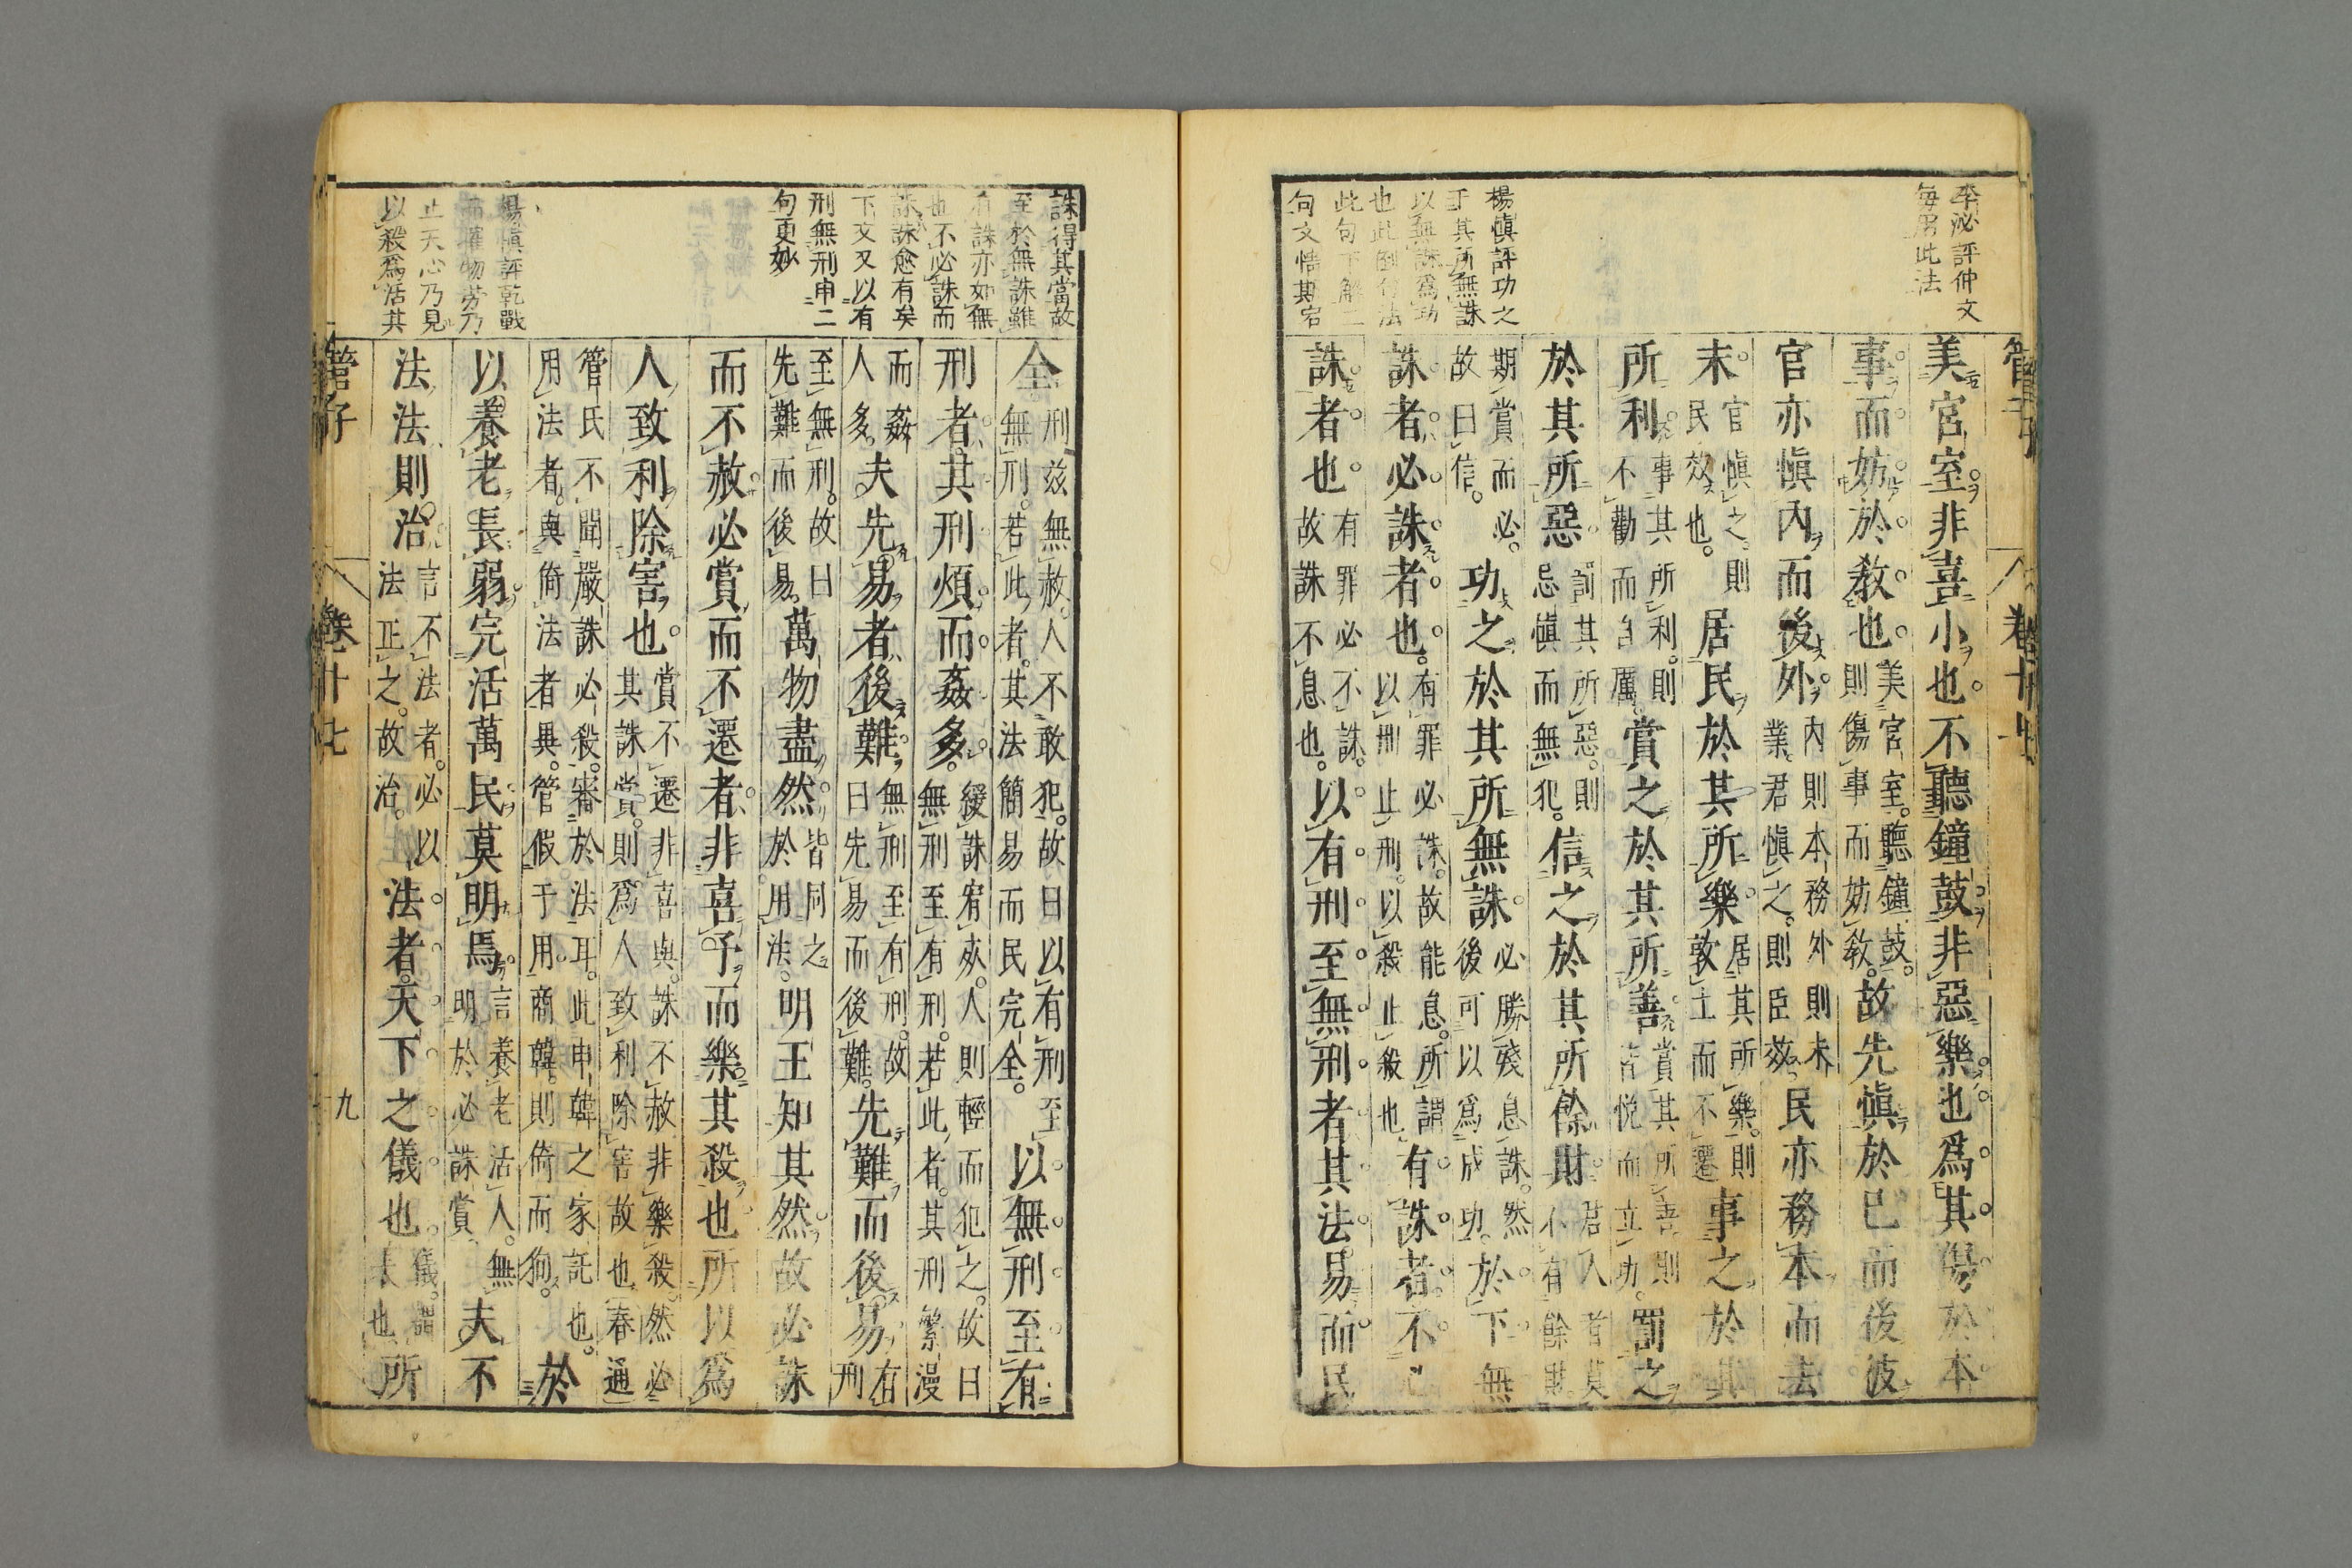 管子 卷十七
李泌評仲文
每用此法
楊慎評功之
于其所無誅
以無誅為功
也此倒句法
此句下解二
句文情斯宕
美宮室非喜小也不聽鐘鼓非惡樂也為其傷於本
事而妨於教也美宮室。聽鐘鼓。則傷事而妨教。故先慎於已而後彼
官亦慎內而後外內則本務外則末業。君慎之。則臣效民亦務本而去
末官慎之。則民效也。居民於其所樂居其所樂。則敦土而不遷事之於其
所利事其所利。則不勸而自厲。賞之於其所善賞其所善則皆悅而立功。罰之
於其所惡罰其所惡。則忌慎而無犯。信之於其所餘財君人者莫不有餘財。
期賞而必。故曰信。功之於其所無誅必勝殘息誅。然後可以為成功。於下無
誅者必誅者也。有罪必誅。故能息。所謂以刑止刑。以殺止殺也有誅者不必
誅者也有罪必不誅。故誅不息也。以有刑至無刑者其法易而民
誅得其當故
至於無誅雖
有誅亦如無
也不必誅而
誅誅愈有矣
下文又以有
刑無刑申二
句更妙
楊慎評乾戰
物勞乃
止天心乃見
以殺為活其
全刑茲無赦。人不敢犯。故曰以有刑至無刑。若此者。其法簡易而民完全。以無刑至有
刑者其刑煩而姦多。緩誅宥赦。人則輕而犯之。故曰無刑至有刑。若此者。其刑繁漫
而姦人多。夫先易者後難無刑至有刑。故曰先易而後難。先難而後易有刑
至無刑。故曰先難而後易。萬物盡然皆同之於用法。明王知其然故必誅
而不赦必賞而不遷者非喜予而樂其殺也所以為
人致利除害也賞不遷非喜與。誅不赦非樂殺。然必其誅賞。則為人致利除害故也春通
管氏不聞嚴誅必殺。審於法耳。此申韓之家託也。用法者。與倚法者異。管假于用。商韓。則倚而狗。於
以養老長弱完活萬民莫明焉言養老活人。無明於必誅賞夫不
法法則治言不法者。必以法正之。故治。法者天下之儀也儀。謂表也所
管子 卷十七 九